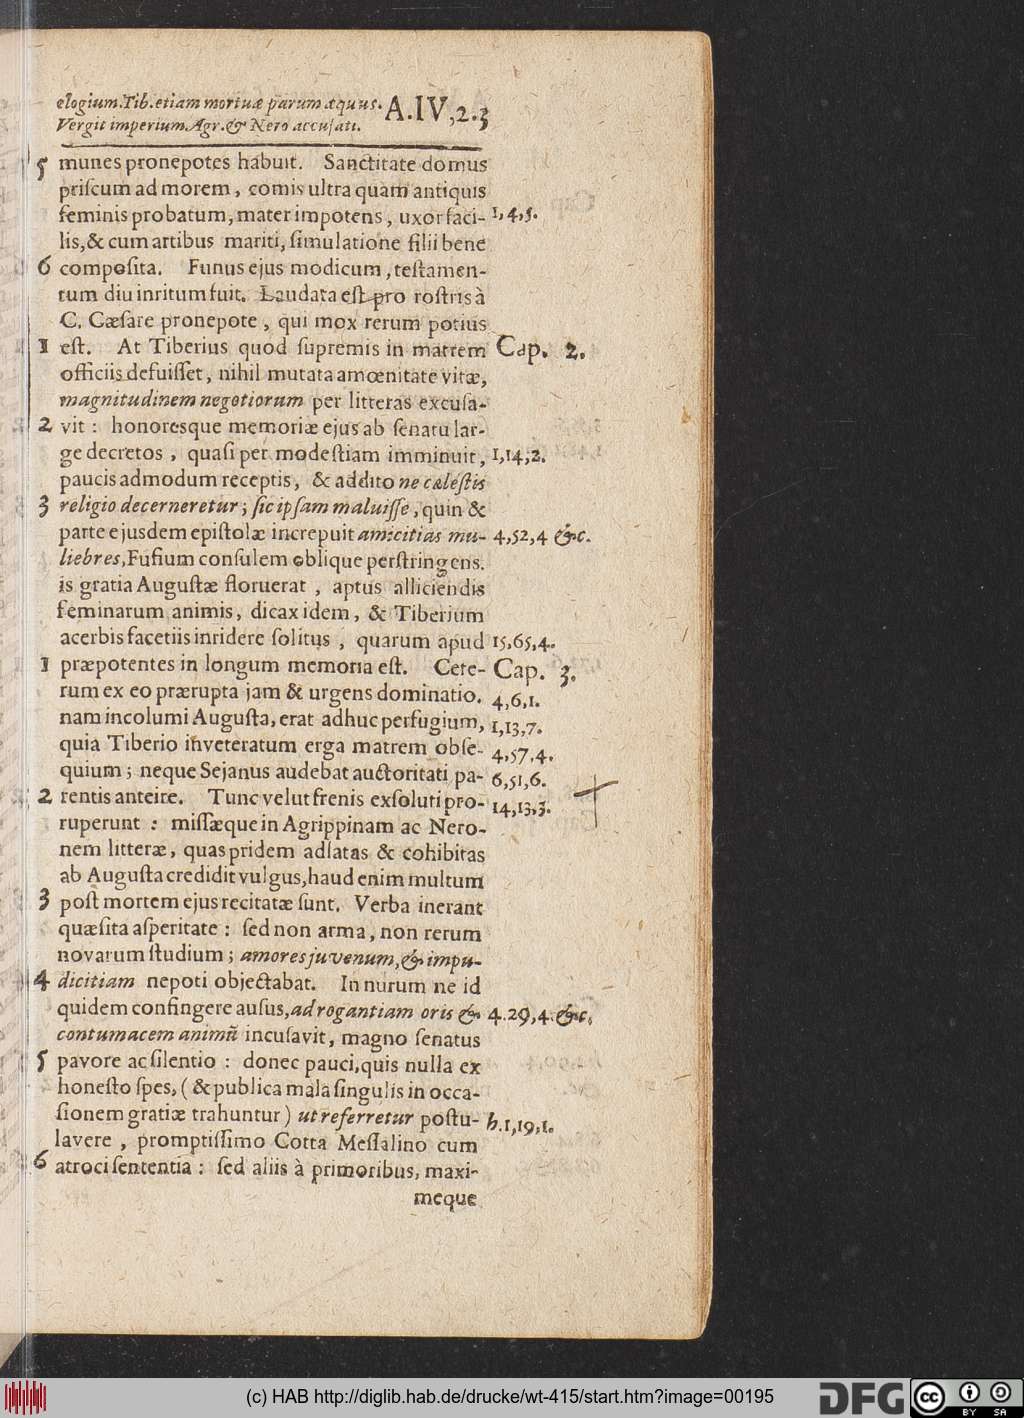 elogium. Tib. etiam mortuæ parum æquus. A.IV,2.3
Vergit imperium. Agr. & Nero accusati.
5 munes pronepotes habuit. Sanctitate domus
priſcum ad morem, comis ultra quam antiquis
feminis probatum, mater impotens, uxor faci- 1,4,5.
lis, & cum artibus mariti, ſimulatione filii bene
6 compoſita. Funus ejus modicum, teſtamen-
tum diu inritum fuit. Laudata eſt pro roſtris à
C. Cæſare pronepote, qui mox rerum potius
1 eſt. At Tiberius quod ſupremis in matrem Cap. 2.
officiis defuiſſet, nihil mutata amœnitate vitæ,
magnitudinem negotiorum per litteras excuſa-
2 vit: honoresque memoriæ ejus ab ſenatu lar-
ge decretos, quaſi per modeſtiam imminuit, 1,14,2.
paucis admodum receptis, & addito ne cæleſtis
3 religio decerneretur; ſic ipſam maluiſſe, quin &
parte ejusdem epiſtolæ increpuit amicitias mu- 4,52,4 &c.
liebres, Fufium conſulem oblique perſtringens.
is gratia Auguſtæ floruerat, aptus alliciendis
feminarum animis, dicax idem, & Tiberium
acerbis facetiis inridere ſolitus, quarum apud 15,65,4.
1 præpotentes in longum memoria eſt. Cete- Cap. 3.
rum ex eo prærupta jam & urgens dominatio. 4,6,1.
nam incolumi Auguſta, erat adhuc perfugium, 1,13,7.
quia Tiberio inveteratum erga matrem obſe- 4,57,4.
quium; neque Sejanus audebat auctoritati pa- 6,51,6.
2 rentis anteire. Tunc velut frenis exſoluti pro- 14,13,3.
ruperunt: miſſæque in Agrippinam ac Nero-
nem litteræ, quas pridem adlatas & cohibitas
ab Auguſta credidit vulgus, haud enim multum
3 poſt mortem ejus recitatæ ſunt. Verba inerant
quæſita aſperitate: ſed non arma, non rerum
novarum ſtudium; amores juvenum, & impu-
4 dicitiam nepoti objectabat. In nurum ne id
quidem confingere auſus, adrogantiam oris & 4.29,4.&c.
contumacem animũ incuſavit, magno ſenatus
5 pavore ac ſilentio: donec pauci, quis nulla ex
honeſto ſpes, (& publica mala ſingulis in occa-
ſionem gratiæ trahuntur) ut referretur poſtu- h.1,19,1.
lavere, promptiſſimo Cotta Meſſalino cum
6 atroci ſententia: ſed aliis à primoribus, maxi-
meque
(c) HAB http://diglib.hab.de/drucke/wt-415/start.htm?image=00195
DFG
cc BY SA